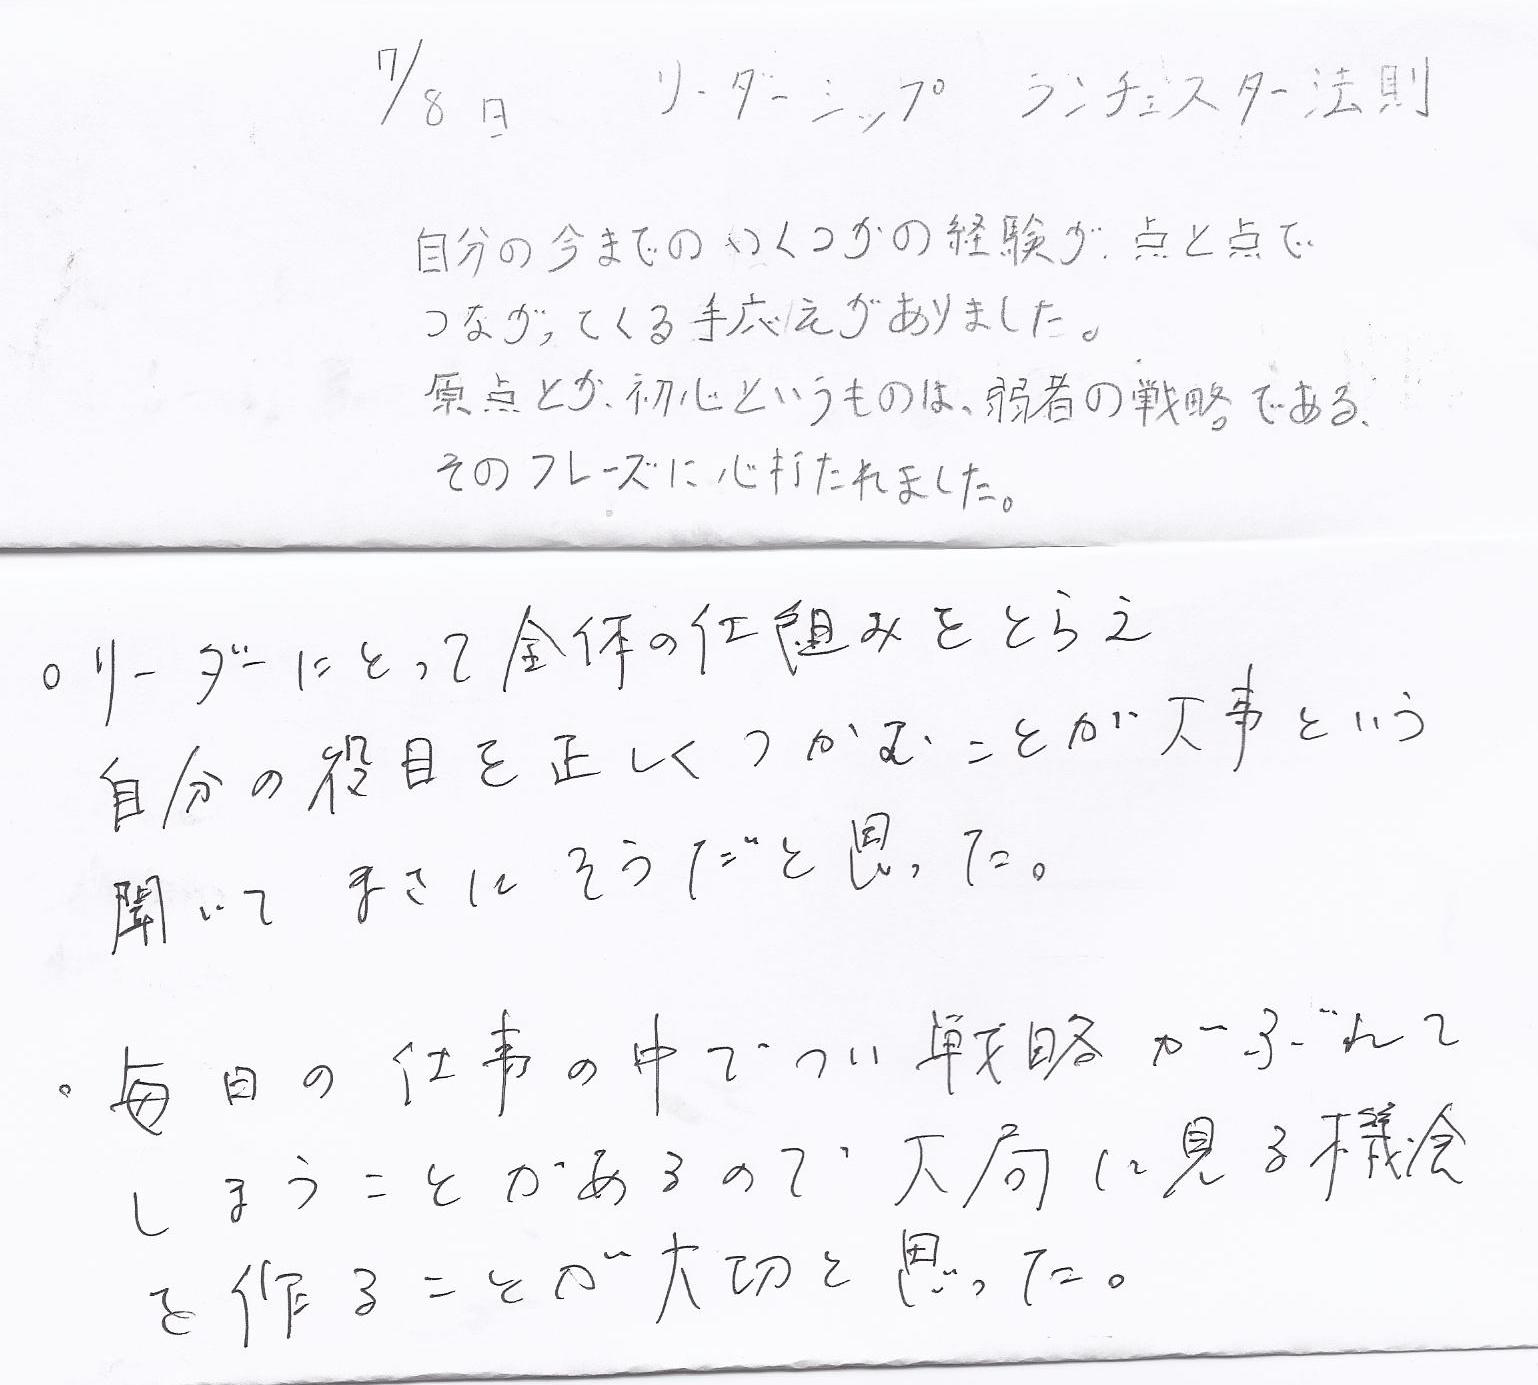 7/8日 リーダーシップ ランチェスター法則
自分の今までのいくつかの経験が、点と点で
つながってくる手応えがありました。
原点とか、初心というものは、弱者の戦略である、
そのフレーズに心打たれました。
○リーダーにとって全体の仕組みをとらえ
自分の役目を正しくつかむことが大事という
聞いてまさにそうだと思った。
・毎日の仕事の中でつい戦略がぶれて
しまうことがあるので大局に見る機会
を作ることが大切と思った。